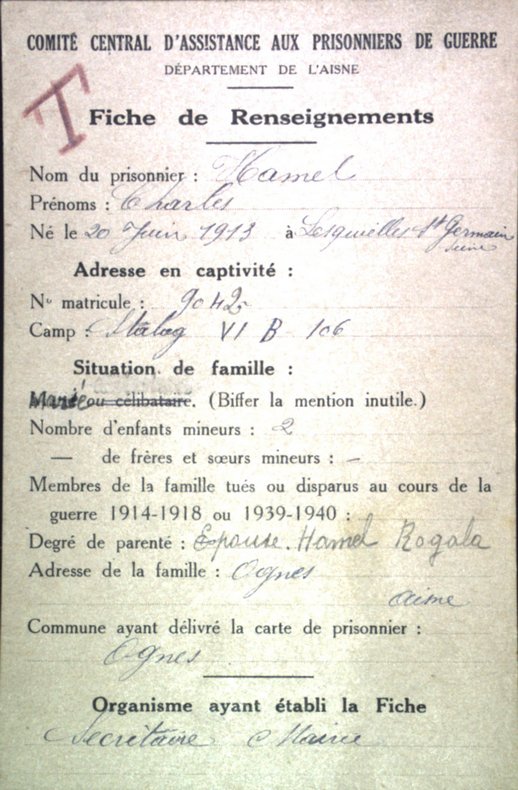 COMITÉ CENTRAL D'ASSISTANCE AUX PRISONNIERS DE GUERRE
DÉPARTEMENT DE L'AISNE
T
Fiche de Renseignements
Nom du prisonnier : Hamel
Prénoms : Charles
Né le 20 Juin 1913 à Lesquielles St Germain
Aisne
Adresse en captivité :
N° matricule : 9042
Camp : Stalag VI B 106
Situation de famille :
Marié ou célibataire. (Biffer la mention inutile.)
Nombre d'enfants mineurs : 2
— de frères et sœurs mineurs : -
Membres de la famille tués ou disparus au cours de la
guerre 1914-1918 ou 1939-1940 :
Degré de parenté : Epouse. Hamel Rogala
Adresse de la famille : Ognes
aisne
Commune ayant délivré la carte de prisonnier :
Ognes
Organisme ayant établi la Fiche
Secrétaire Mairie